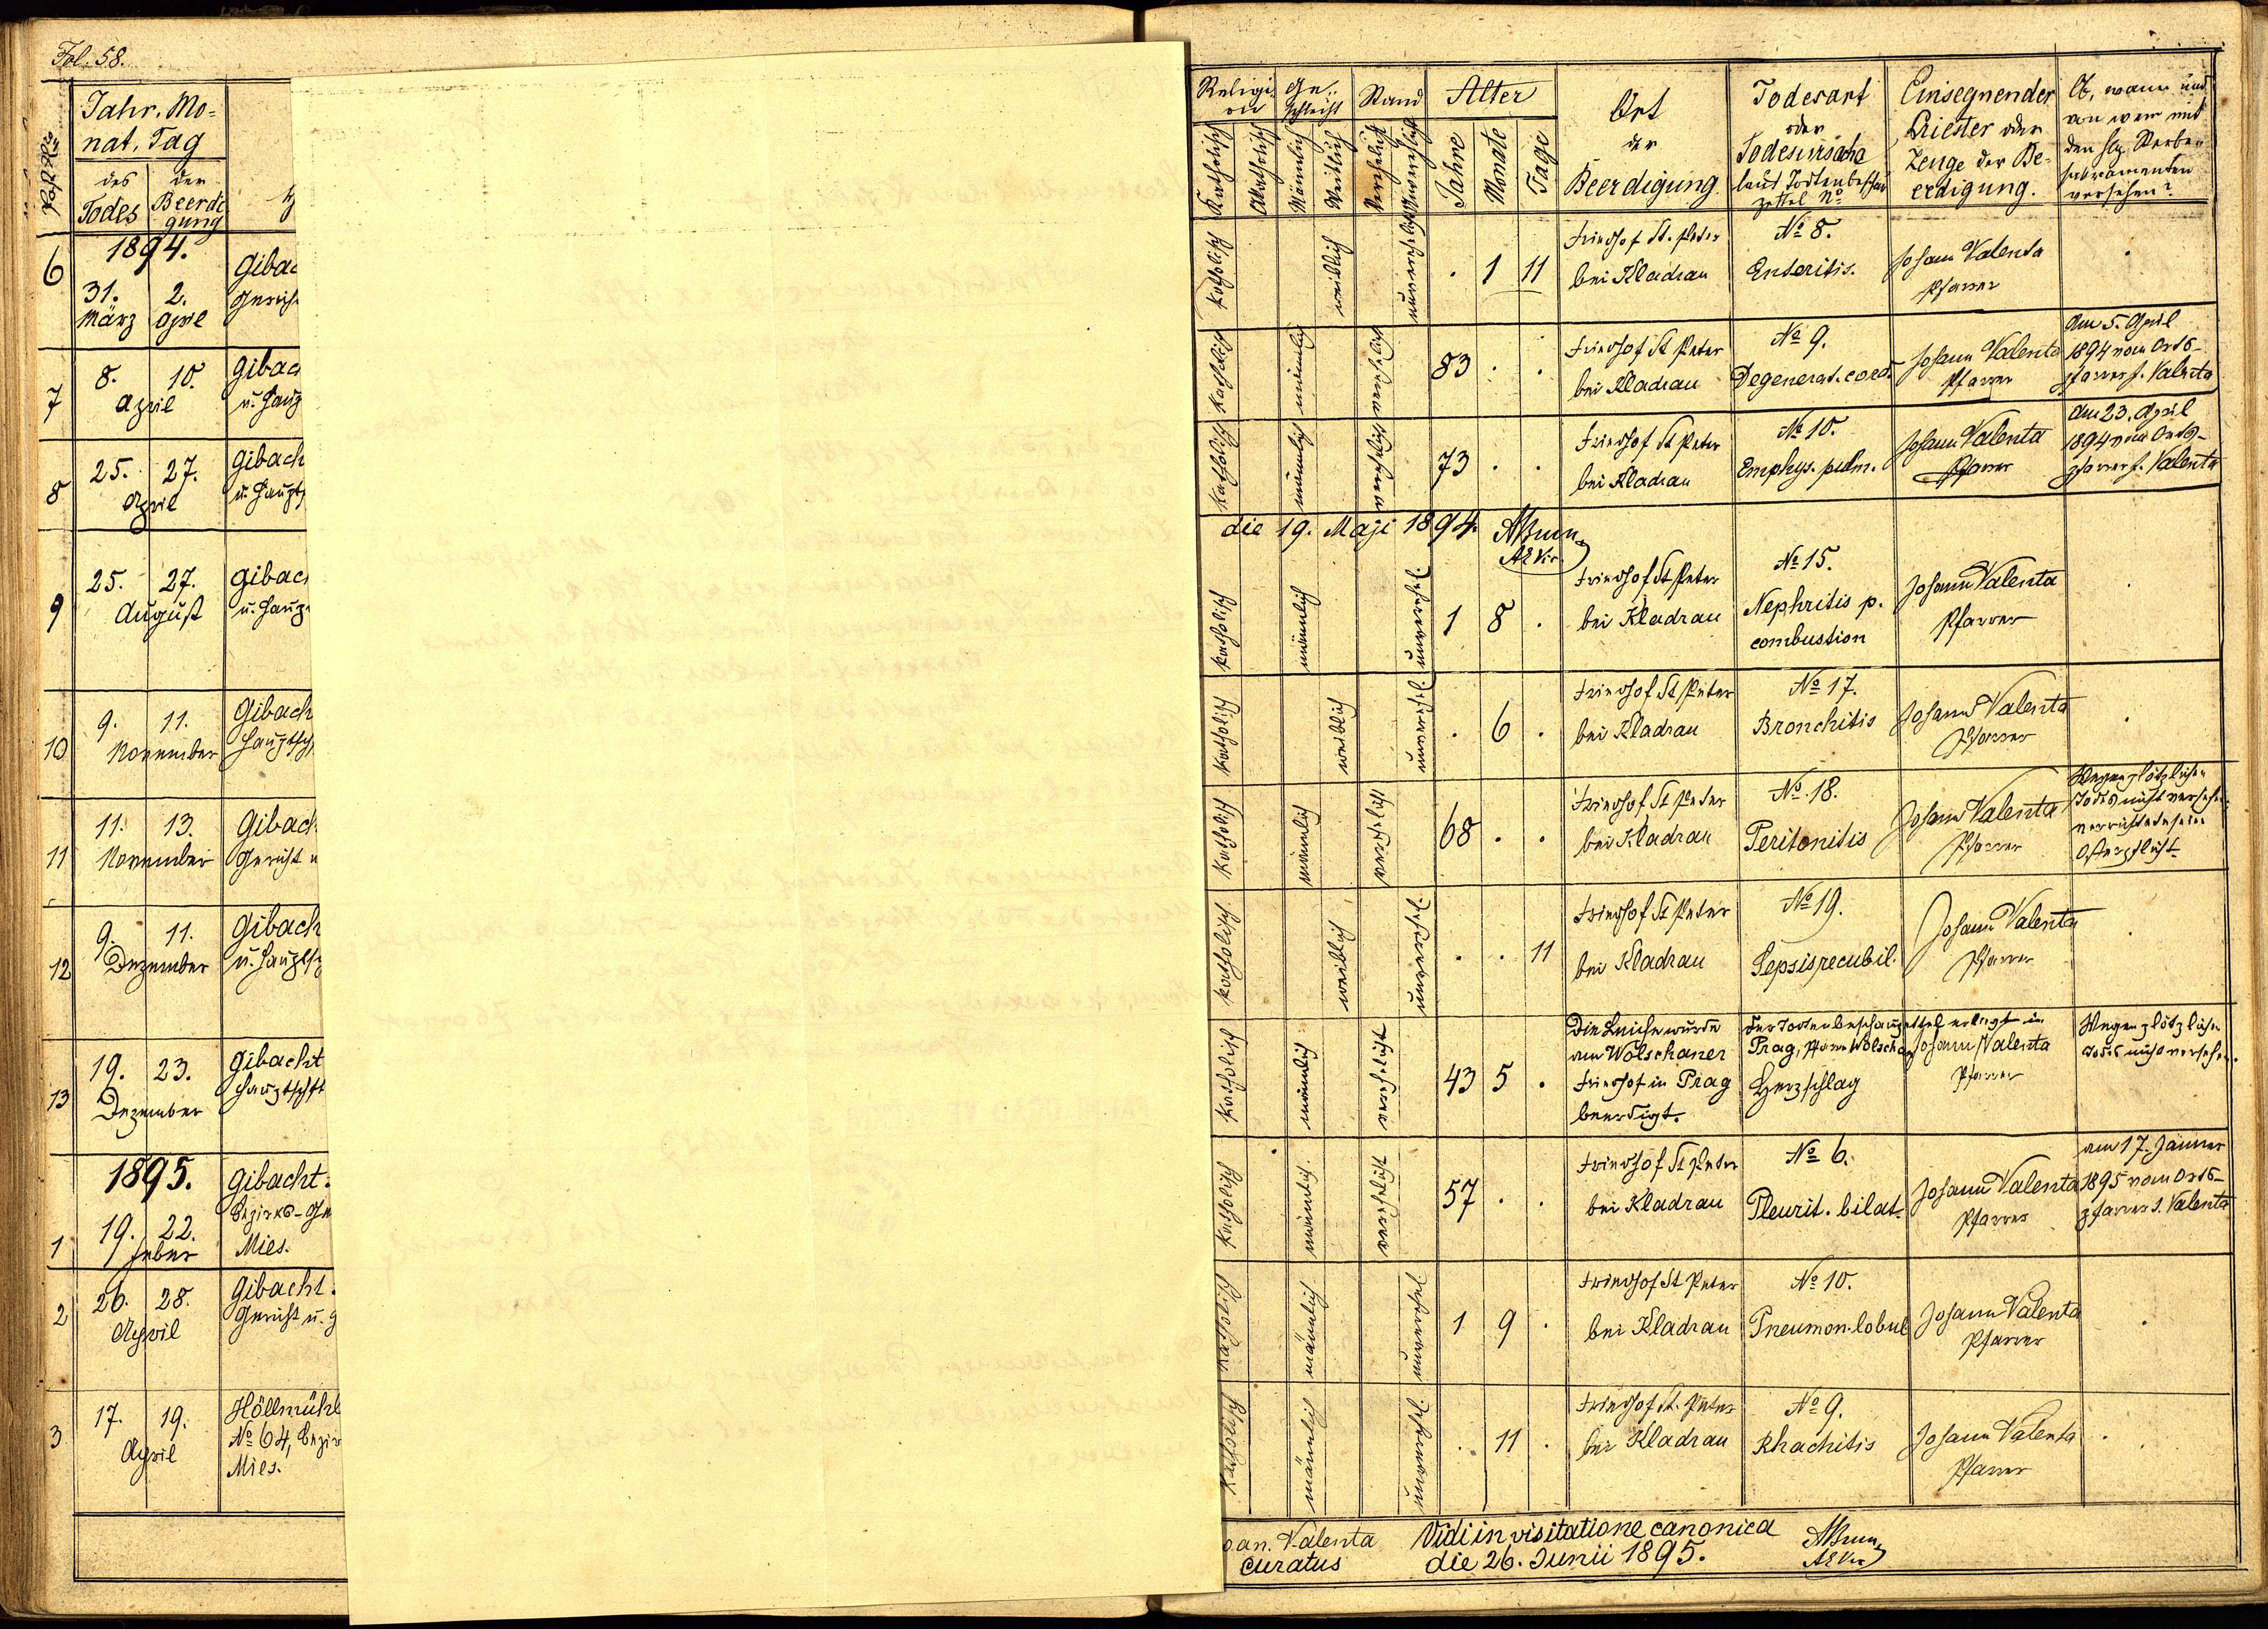 Fol. 58.
Jahr, Mo-
nat, Tag
des
Todes
der
Beerdi
gung
Religi-
on
Ge-
schlecht
Stand
Alter
Katholisch
Akatholisch
Männlich
Weiblich
Verehelicht
Unverehelicht
Jahre
Monate
Tage
Ort
der
Beerdigung.
Todesart
oder
Todesursache
laut Todtenbeschau
zettel No
Einsegnender
Priester oder
Zeuge der Be-
erdigung.
Ob, wann und
von wem mit
den hlg. Sterbe-
sakramenten
versehen?
6
1894.
31.
März
2.
April
Gibac
Gerich
katholisch
weiblich
unverehelicht
. 1 11
Friedhof St. Peter
bei Kladrau
No 8.
Enteritis.
Johann Valenta
Pfarrer
7
8. 10.
April
Gibac
u. Haup
katholisch
männlich
verehelicht
83 . .
Friedhof St Peter
bei Kladrau
No 9.
Degenerat. cord.
Johann Valenta
Pfarrer
Am 5. April
1894 vom Orts-
pfarrer J. Valenta
8
25. 27.
April
Gibach
u. Haupt
katholisch
männlich
verehelicht
73 . .
Friedhof St Peter
bei Kladrau
No 10.
Emphys. pulm.
Johann Valenta
Pfarrer
Am 23. April
1894 vom Orts-
pfarrer J. Valenta
die 19. Maji 1894.
9
25. 27.
August
Gibac
u. Haup
katholisch
männlich
unverehel.
1 8 .
Friedhof St Peter
bei Kladrau
No 15.
Nephritis p.
combustion
Johann Valenta
Pfarrer
10
9. 11.
November
Gibach
Hauptsch
katholisch
weiblich
unverehel.
. 6 .
Friedhof St Peter
bei Kladrau
No 17.
Bronchitis
Johann Valenta
Pfarrer
11
11. 13.
November
Gibach
Gericht u
katholisch
männlich
verehelicht
68 . .
Friedhof St Peter
bei Kladrau
No 18.
Peritonitis
Johann Valenta
Pfarrer
Wegen plötzlichen
Todes nicht versehen.
verrichtete seine
Osterpflicht
12
9. 11.
Dezember
Gibach
u. Hauptsch
katholisch.
weiblich
unverehel.
. . 11
Friedhof St Peter
bei Kladrau
No 19.
Sepsis recubil.
Johann Valenta
Pfarrer
13
19. 23.
Dezember
Gibacht
Hauptschft
katholisch
männlich
verehelicht
43 5 .
Die Leiche wurde
am Wolschaner
Friedhof in Prag
beerdigt.
Der Todtenbeschauzettel erliegt in
Prag, Pfarre Wolschan
Herzschlag
Johann Valenta
Pfarrer
Wegen plötzlichen
Todes nicht versehen.
1
1895.
19. 22.
Jeber
Gibacht.
Bezirks-Ge
Mies.
katholisch
männlich.
verehelicht
57 . .
Friedhof St Peter
bei Kladrau
No 6.
Pleurit. bilat.
Johann Valenta
Pfarrer
am 17. Jänner
1895 vom Orts-
pfarrer J. Valenta
2
26. 28.
April
Gibacht.
Gericht u. g
katholisch
männlich
unverehel
1 9 .
Friedhof St Peter
bei Kladrau
No 10.
Pneumon. lobul
Johann Valenta
Pfarrer
3
17. 19.
April
Höllmühl
No 64, Bezir
Mies.
katholisch
männlich
unverehel.
. 11 .
Friedhof St. Peter
bei Kladrau
No 9.
Rhachitis
Johann Valenta
Pfarrer
oan. Valenta
curatus
Vidi in visitatione canonica
die 26. Junii 1895.